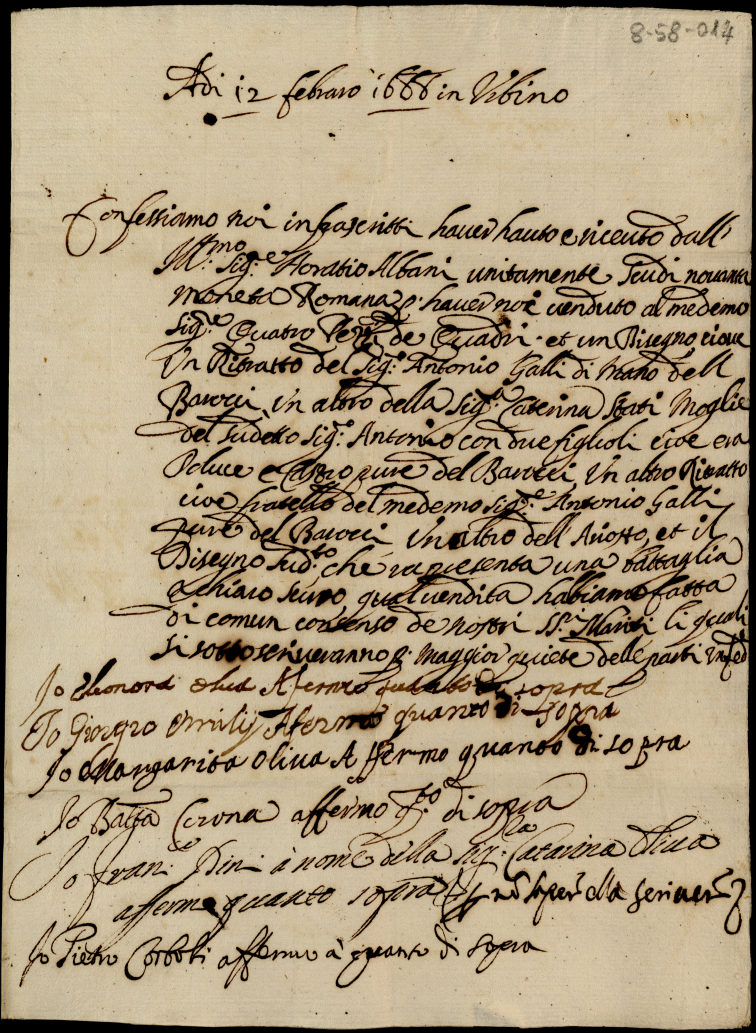 8-58-014
Adi 12 febraro 1686 in Vrbino
Confessiamo noi infrascritti hauer hauto e riceuto dall'
Ill.mo Sig.re Horatio Albani unitamente scudi nouanta
moneta Romana p. hauer noi uenduto al medemo
Sig.re Quatro Pezzi de Quadri et un Disegno cioue
Un Ritratto del Sig.r Antonio Galli di mano dell
Barocci, Un altro della Sig.ra Caterina Stati Moglie
del sudetto Sig.r Antonio con due figlioli cioe era
Poluce e Castro pure del Barocci Un altro Ritratto
cioe fratello del medemo Sig.re Antonio Galli
pure del Barocci Un altro dell Ariosto, et il
Disegno sud.to che rapresenta una battaglia
a chiaro scuro qual uendita habbiamo fatta
di comun consenso de nostri SS.ri Mariti li quali
si sottoscriueranno p. maggior quiete delle parti
Io Eleonora oliua Afermo quanto di sopra
Io Giorgio Afermo quanto di sopra
Io Margarita Oliua Affermo quanto di sopra
Io Batta Cerona affermo q.to di sopra
Io Fran.co Dini à nome della Sig.ra Catarina Oliua
affermo quanto sopra p. nõ saper ella scriuere
Io Pietro affermo à quanto di sopra